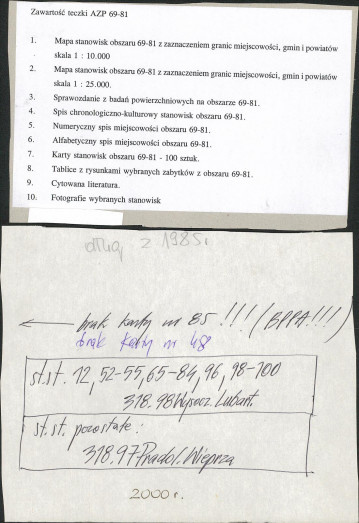 Zawartość teczki AZP 69-81
1. Mapa stanowisk obszaru 69-81 z zaznaczeniem granic miejscowości, gmin i powiatów
skala 1 : 10.000
2. Mapa stanowisk obszaru 69-81 z zaznaczeniem granic miejscowości, gmin i powiatów
skala 1 : 25.000.
3. Sprawozdanie z badań powierzchniowych na obszarze 69-81.
4. Spis chronologiczno-kulturowy stanowisk obszaru 69-81.
5. Numeryczny spis miejscowości obszaru 69-81.
6. Alfabetyczny spis miejscowości obszaru 69-81.
7. Karty stanowisk obszaru 69-81 - 100 sztuk.
8. Tablice z rysunkami wybranych zabytków z obszaru 69-81.
9. Cytowana literatura.
10. Fotografie wybranych stanowisk
z 1985r
brak karty nr 85!!! (BPPA!!!)
brak karty nr 48
st.st. 12, 52-55, 65-84, 96, 98-100
318.98 Wysocz. Lubart.
st.st. pozostałe:
318.97 Pradol. Wieprza
2000 r.